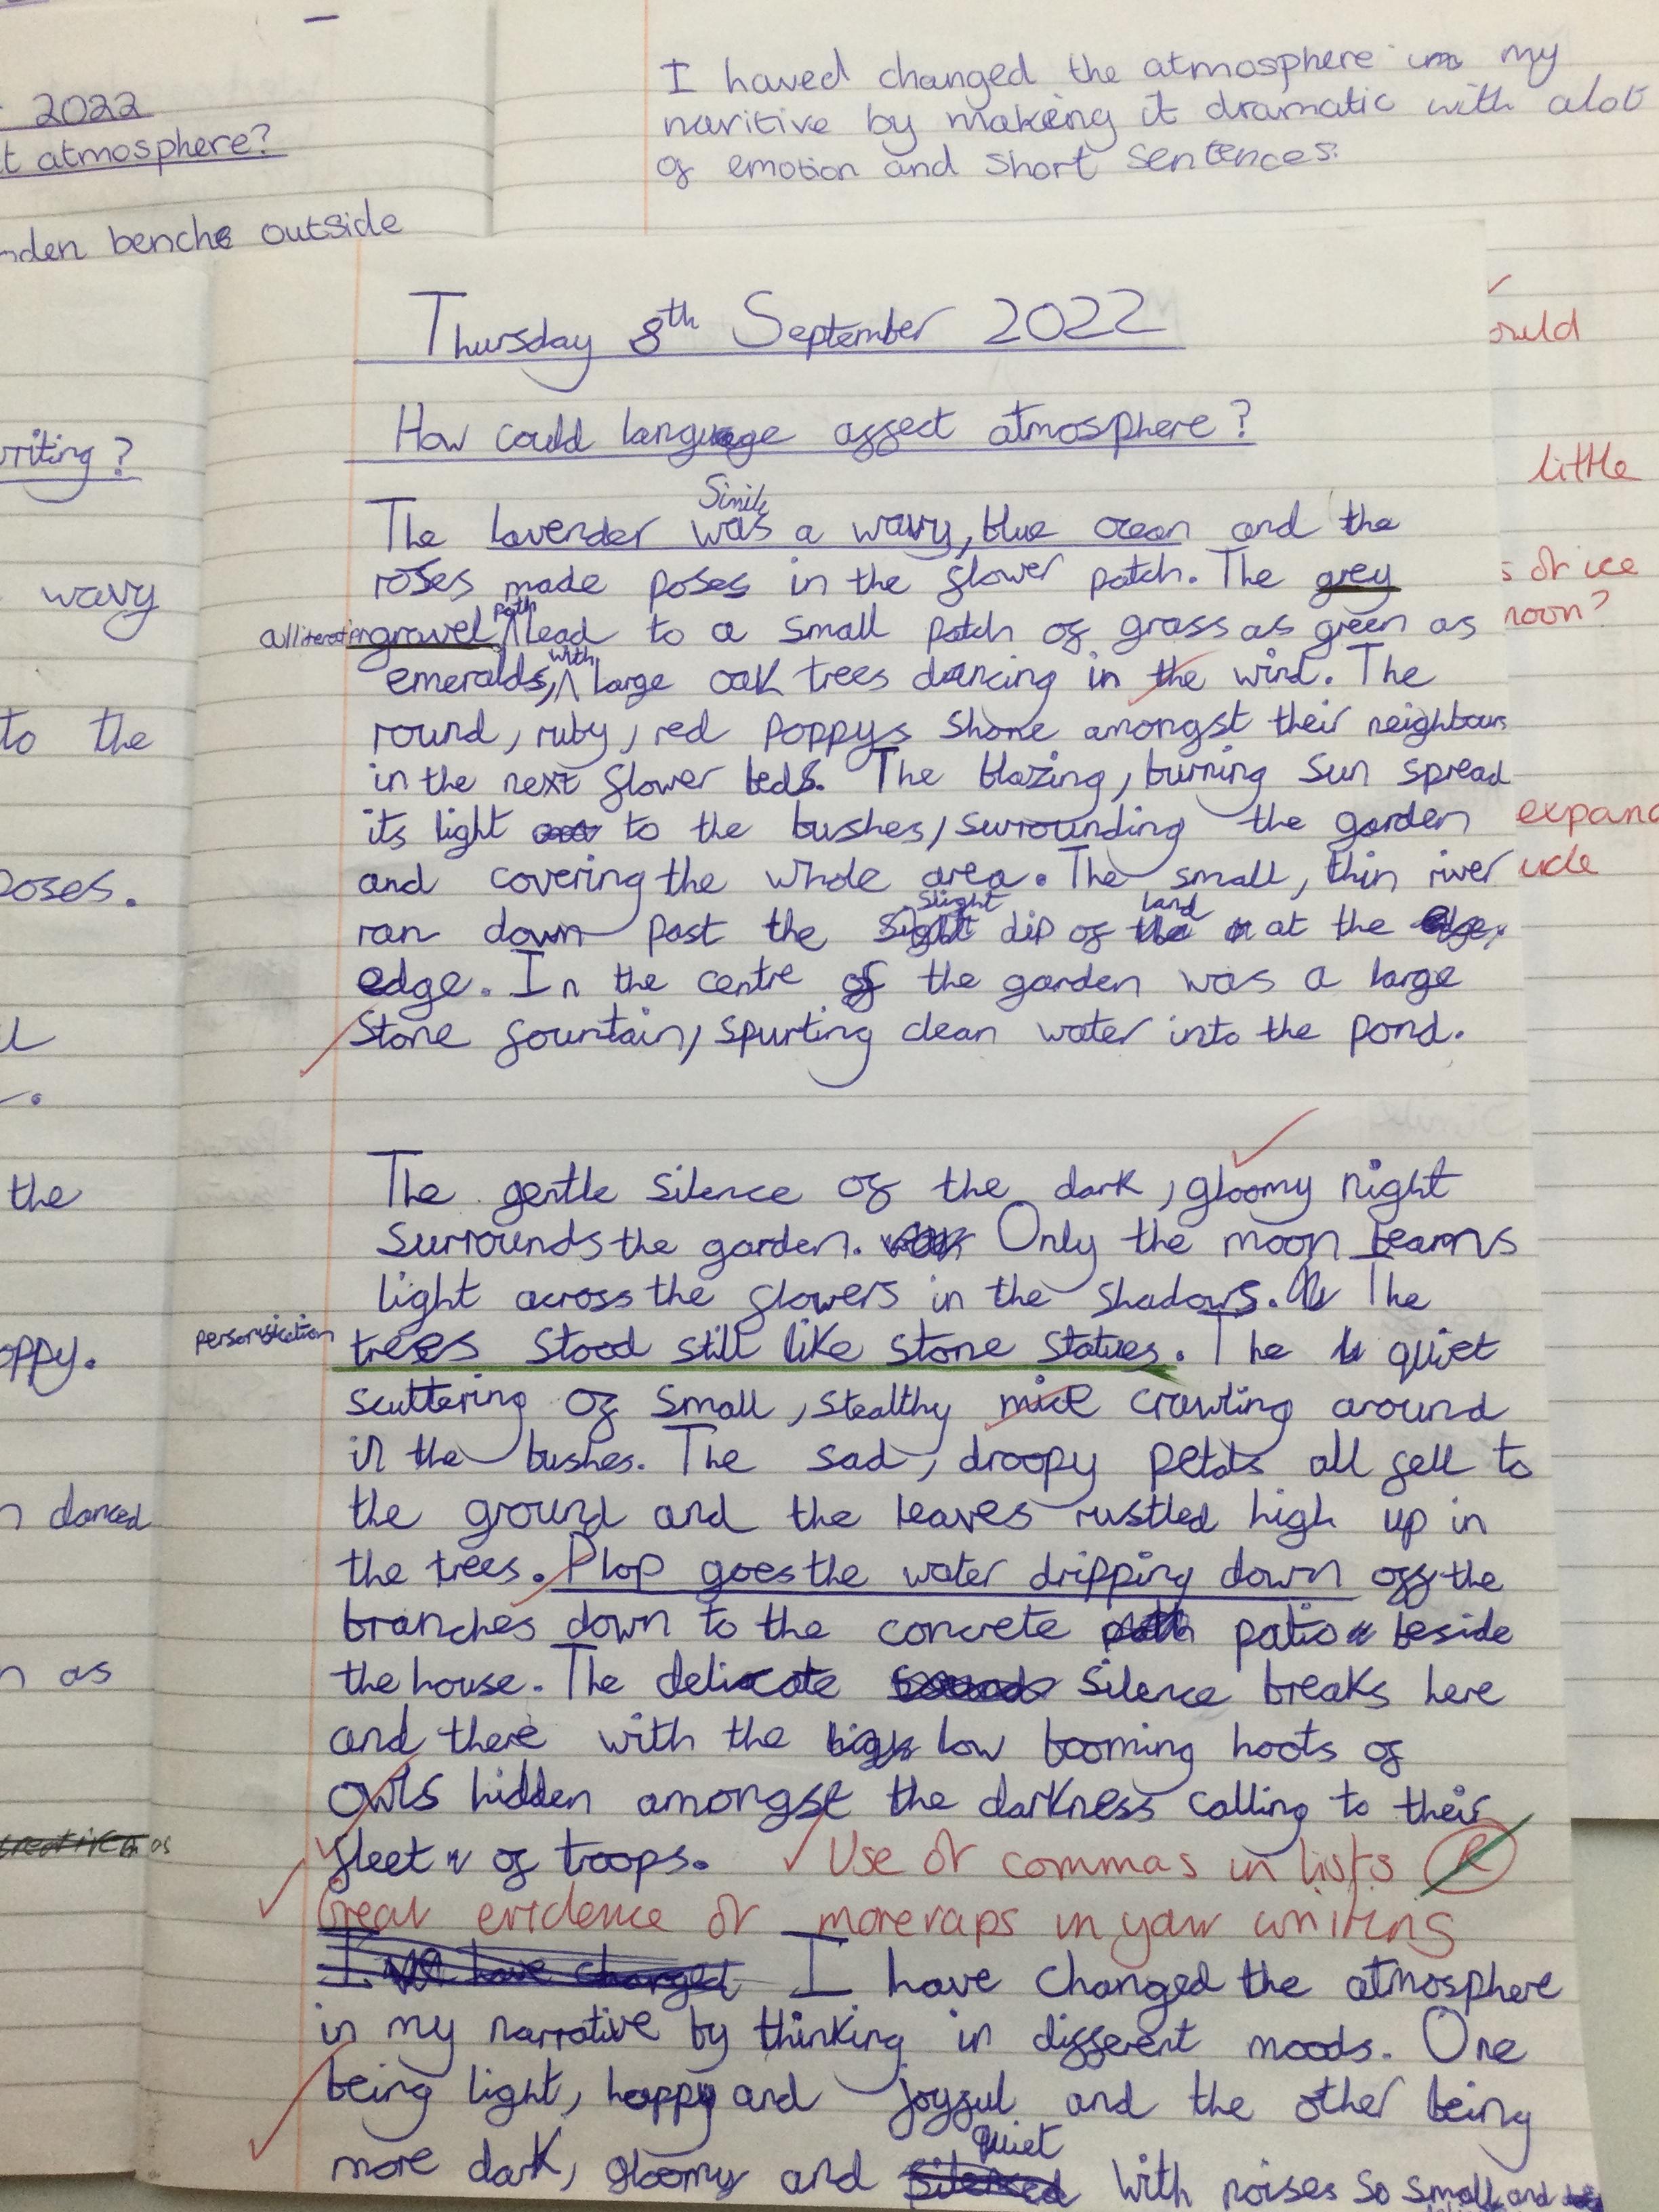 2022
t atmosphere?
nden benche outside
I haved changed the atmosphere in my
naritive by making it dramatic with alot
of emotion and short sentences.
writing?
wavy
to the
poses.
the
oppy.
danced
as
as
Thursday 8th September 2022
How could language affect atmosphere?
Simile
The lavender was a wavy, blue ocean and the
roses made poses in the flower patch. The grey
alliteration gravel path lead to a small patch of grass as green as
emeralds, with large oak trees dancing in the wind. The
round, ruby, red poppys shone amongst their neighbours
in the next flower beds. The blazing, burning sun spread
its light to the bushes, surrounding the garden
and covering the whole area. The small, thin river
ran down past the slight dip of land at the
edge. In the centre of the garden was a large
stone fountain, spurting clean water into the pond.
The gentle silence of the dark, gloomy night
surrounds the garden. Only the moon beams
light across the flowers in the shadows. The
personification trees stood still like stone statues. The quiet
scuttering of small, stealthy mice crawling around
in the bushes. The sad, droopy petals all fell to
the ground and the leaves rustled high up in
the trees. Plop goes the water dripping down off the
branches down to the concrete patio beside
the house. The delicate silence breaks here
and there with the low booming hoots of
owls hidden amongst the darkness calling to their
fleet of troops. Use of commas in lists R
Great evidence of in your writing
I have changed the atmosphere
in my narrative by thinking in different moods. One
being light, happy and joyful and the other being
more dark, gloomy and quiet with noises so small and
ould
little
s of ice
noon?
expand